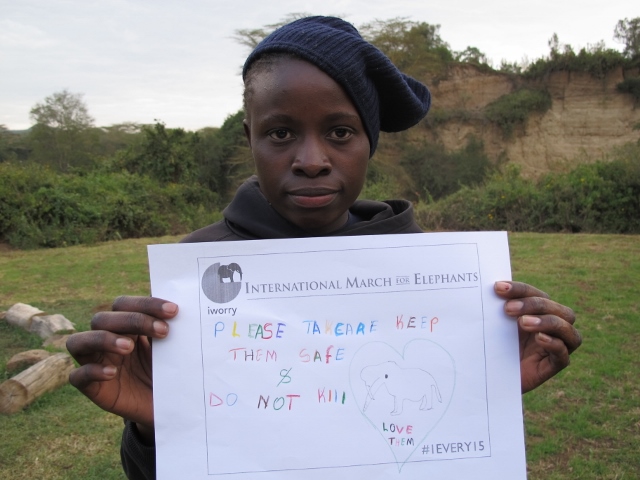 INTERNATIONAL MARCH FOR ELEPHANTS
iworry
PLEASE TAKEARE KEEP
THEM SAFE
&
DO NOT KIll
LOVE
THEM
#1EVERY15